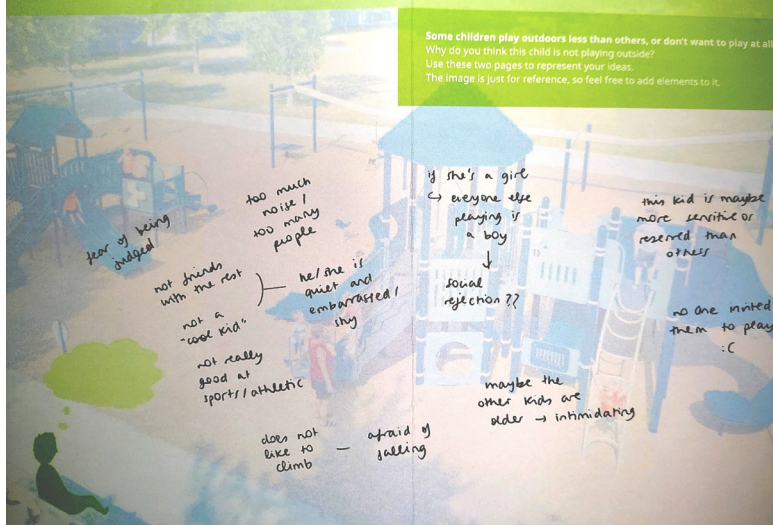 Some children play outdoors less than others, or don't want to play at all
Why do you think this child is not playing outside?
Use these two pages to represent your ideas.
The image is just for reference, so feel free to add elements to it.
fear of being
judged
too much
noise /
too many
people
not friends
with the rest
not a
"cool kid"
he/she is
quiet and
embarrassed /
shy
not really
good at
sports/athletic
does not
like to
climb
— afraid of
falling
if she's a girl
↳ everyone else
playing is
a boy
↓
social
rejection??
maybe the
other kids are
older → intimidating
this kid is maybe
more sensitive or
reserved than
others
no one invited
them to play
:C